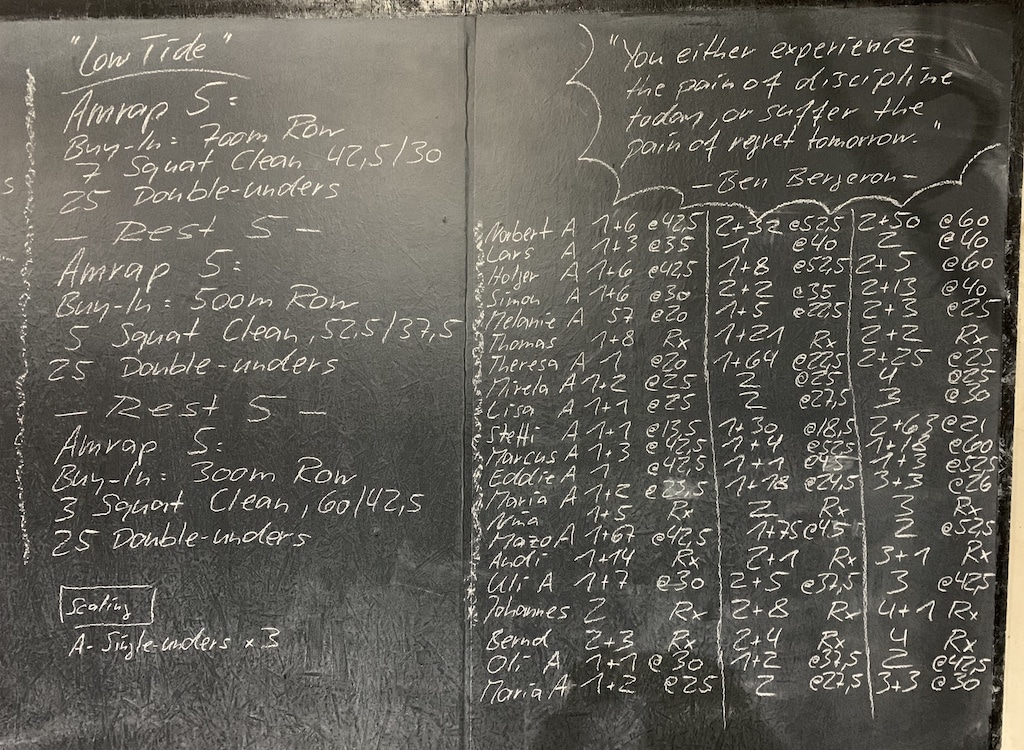 "Low Tide"
Amrap 5:
Buy-In: 700m Row
7 Squat Clean 42,5/30
25 Double-unders
- Rest 5 -
Amrap 5:
Buy-In: 500m Row
5 Squat Clean, 52,5/37,5
25 Double-unders
- Rest 5 -
Amrap 5:
Buy-In: 300m Row
3 Squat Clean, 60/42,5
25 Double-unders
Scaling
A- Single-unders x 3
"You either experience
the pain of discipline
today, or suffer the
pain of regret tomorrow."
- Ben Bergeron -
Norbert A 1+6 @42,5 2+32 @52,5 2+50 @60
Lars A 1+3 @35 1 @40 2 @40
Holger A 1+6 @42,5 1+8 @52,5 2+5 @60
Simon A 1+6 @30 2+2 @35 2+13 @40
Melanie A 57 @20 1+5 @22,5 2+3 @25
Thomas 1+8 Rx 1+21 Rx 2+2 Rx
Theresa A 1 @20 1+64 @22,5 2+25 @25
Mirela A 1+2 @25 2 @25 4 @25
Lisa A 1+1 @25 2 @27,5 3 @30
Steffi A 1+1 @13,5 1+30 @18,5 2+63 @21
Marcus A 1+3 @42,5 1+4 @52,5 1+18 @60
Eddie A 1 @42,5 1+1 @45 1+3 @52,5
Maria A 1+2 @23,5 1+18 @24,5 3+3 @26
Nina 1+5 Rx 2 Rx 3 Rx
Mazo A 1+67 @42,5 1+75 @45 2 @52,5
Andi 1+14 Rx 2+1 Rx 3+1 Rx
Uli A 1+7 @30 2+5 @37,5 3 @42,5
Johannes 2 Rx 2+8 Rx 4+1 Rx
Bernd 2+3 Rx 2+4 Rx 4 Rx
Oli A 1+1 @30 1+2 @37,5 2 @42,5
Maria A 1+2 @25 2 @27,5 3+3 @30